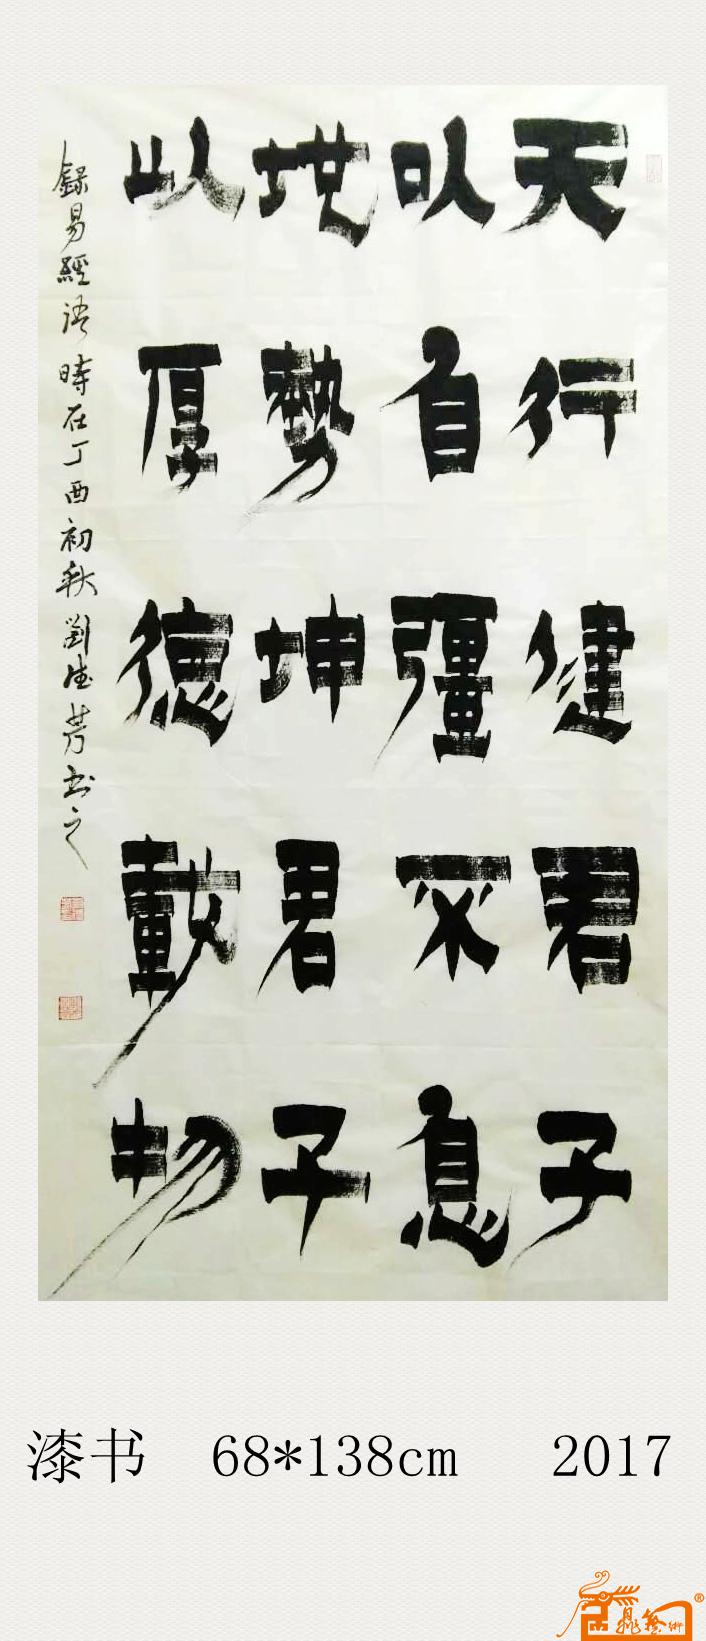 天行健君子
以自彊不息
地勢坤君子
以厚德載物
錄易經語時在丁酉初秋劉德芳书之
漆书 68*138cm 2017